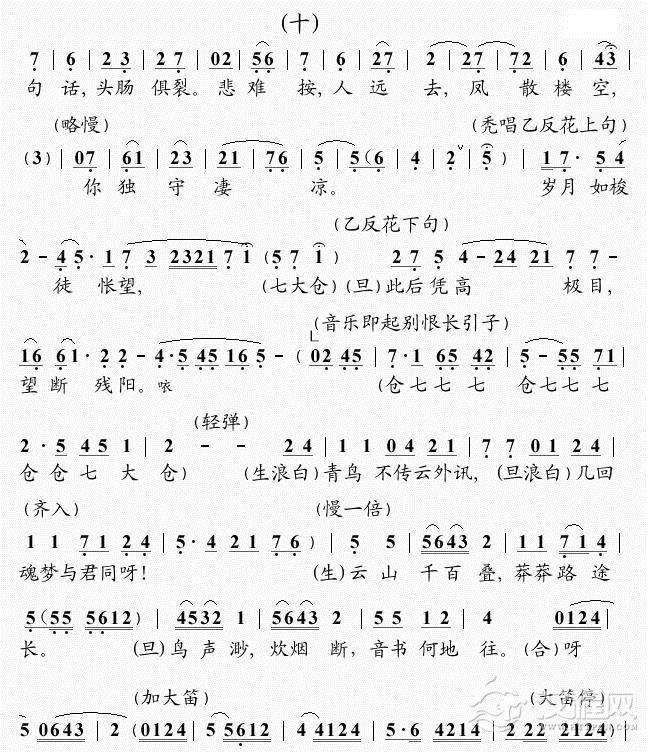 (十)
7 | 6 | 2 3 | 2 7 | 02 | 56 | 7 | 6 | 27 | 2 | 27 | 72 | 6 | 43 |
句 话, 头 肠 俱 裂。 悲 难 按, 人 远 去, 凤 散 楼 空,
(略慢) (秃唱乙反花上句)
(3) | 07 | 61 | 23 | 21 | 76 | 5 | 5(6 | 4 | 2 ˅ | 5) | 17· 54
你 独 守 凄 凉。 岁 月 如 梭
(乙反花下句)
2 - 45· 17 3 2321 7 1 (5 7 1) 27 5 4-24 21 7 7-
徒 怅 望, (七大仓) (旦)此后凭高 极目,
(音乐即起别恨长引子)
16 61· 2 2 - 4·5 45 165 - (02 45 | 7·1 65 42 | 5 - 55 71 |
望 断 残 阳。 咴 (仓七七七 仓七七七
(轻弹)
2·5 45 1 | 2 - - 24 | 1 1 04 21 | 7 7 01 24 |
仓仓七大仓) (生浪白)青鸟 不传云外讯, (旦浪白)几回
(齐入) (慢一倍)
1 1 71 24 | 5·4 21 76) | 5 5 | 5643 2 | 11 714 |
魂梦与君同呀! (生)云 山 千 百 叠, 莽莽 路 途
5 (55 5612) | 4532 1 | 5643 2 | 55 12 | 4 0124 |
长。 (旦)鸟 声 渺, 炊烟 断, 音书 何地 往。(合)呀
(加大笛) (大笛停)
5 0643 | 2 (0124 | 5 5612 | 4 4124 | 5·6 4214 | 2 22 2124 |